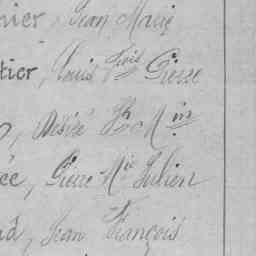 nier, Jean Marie
tier, Louis Fois Pierre
, Désiré
ée, Pierre Mie Julien
d, Jean François